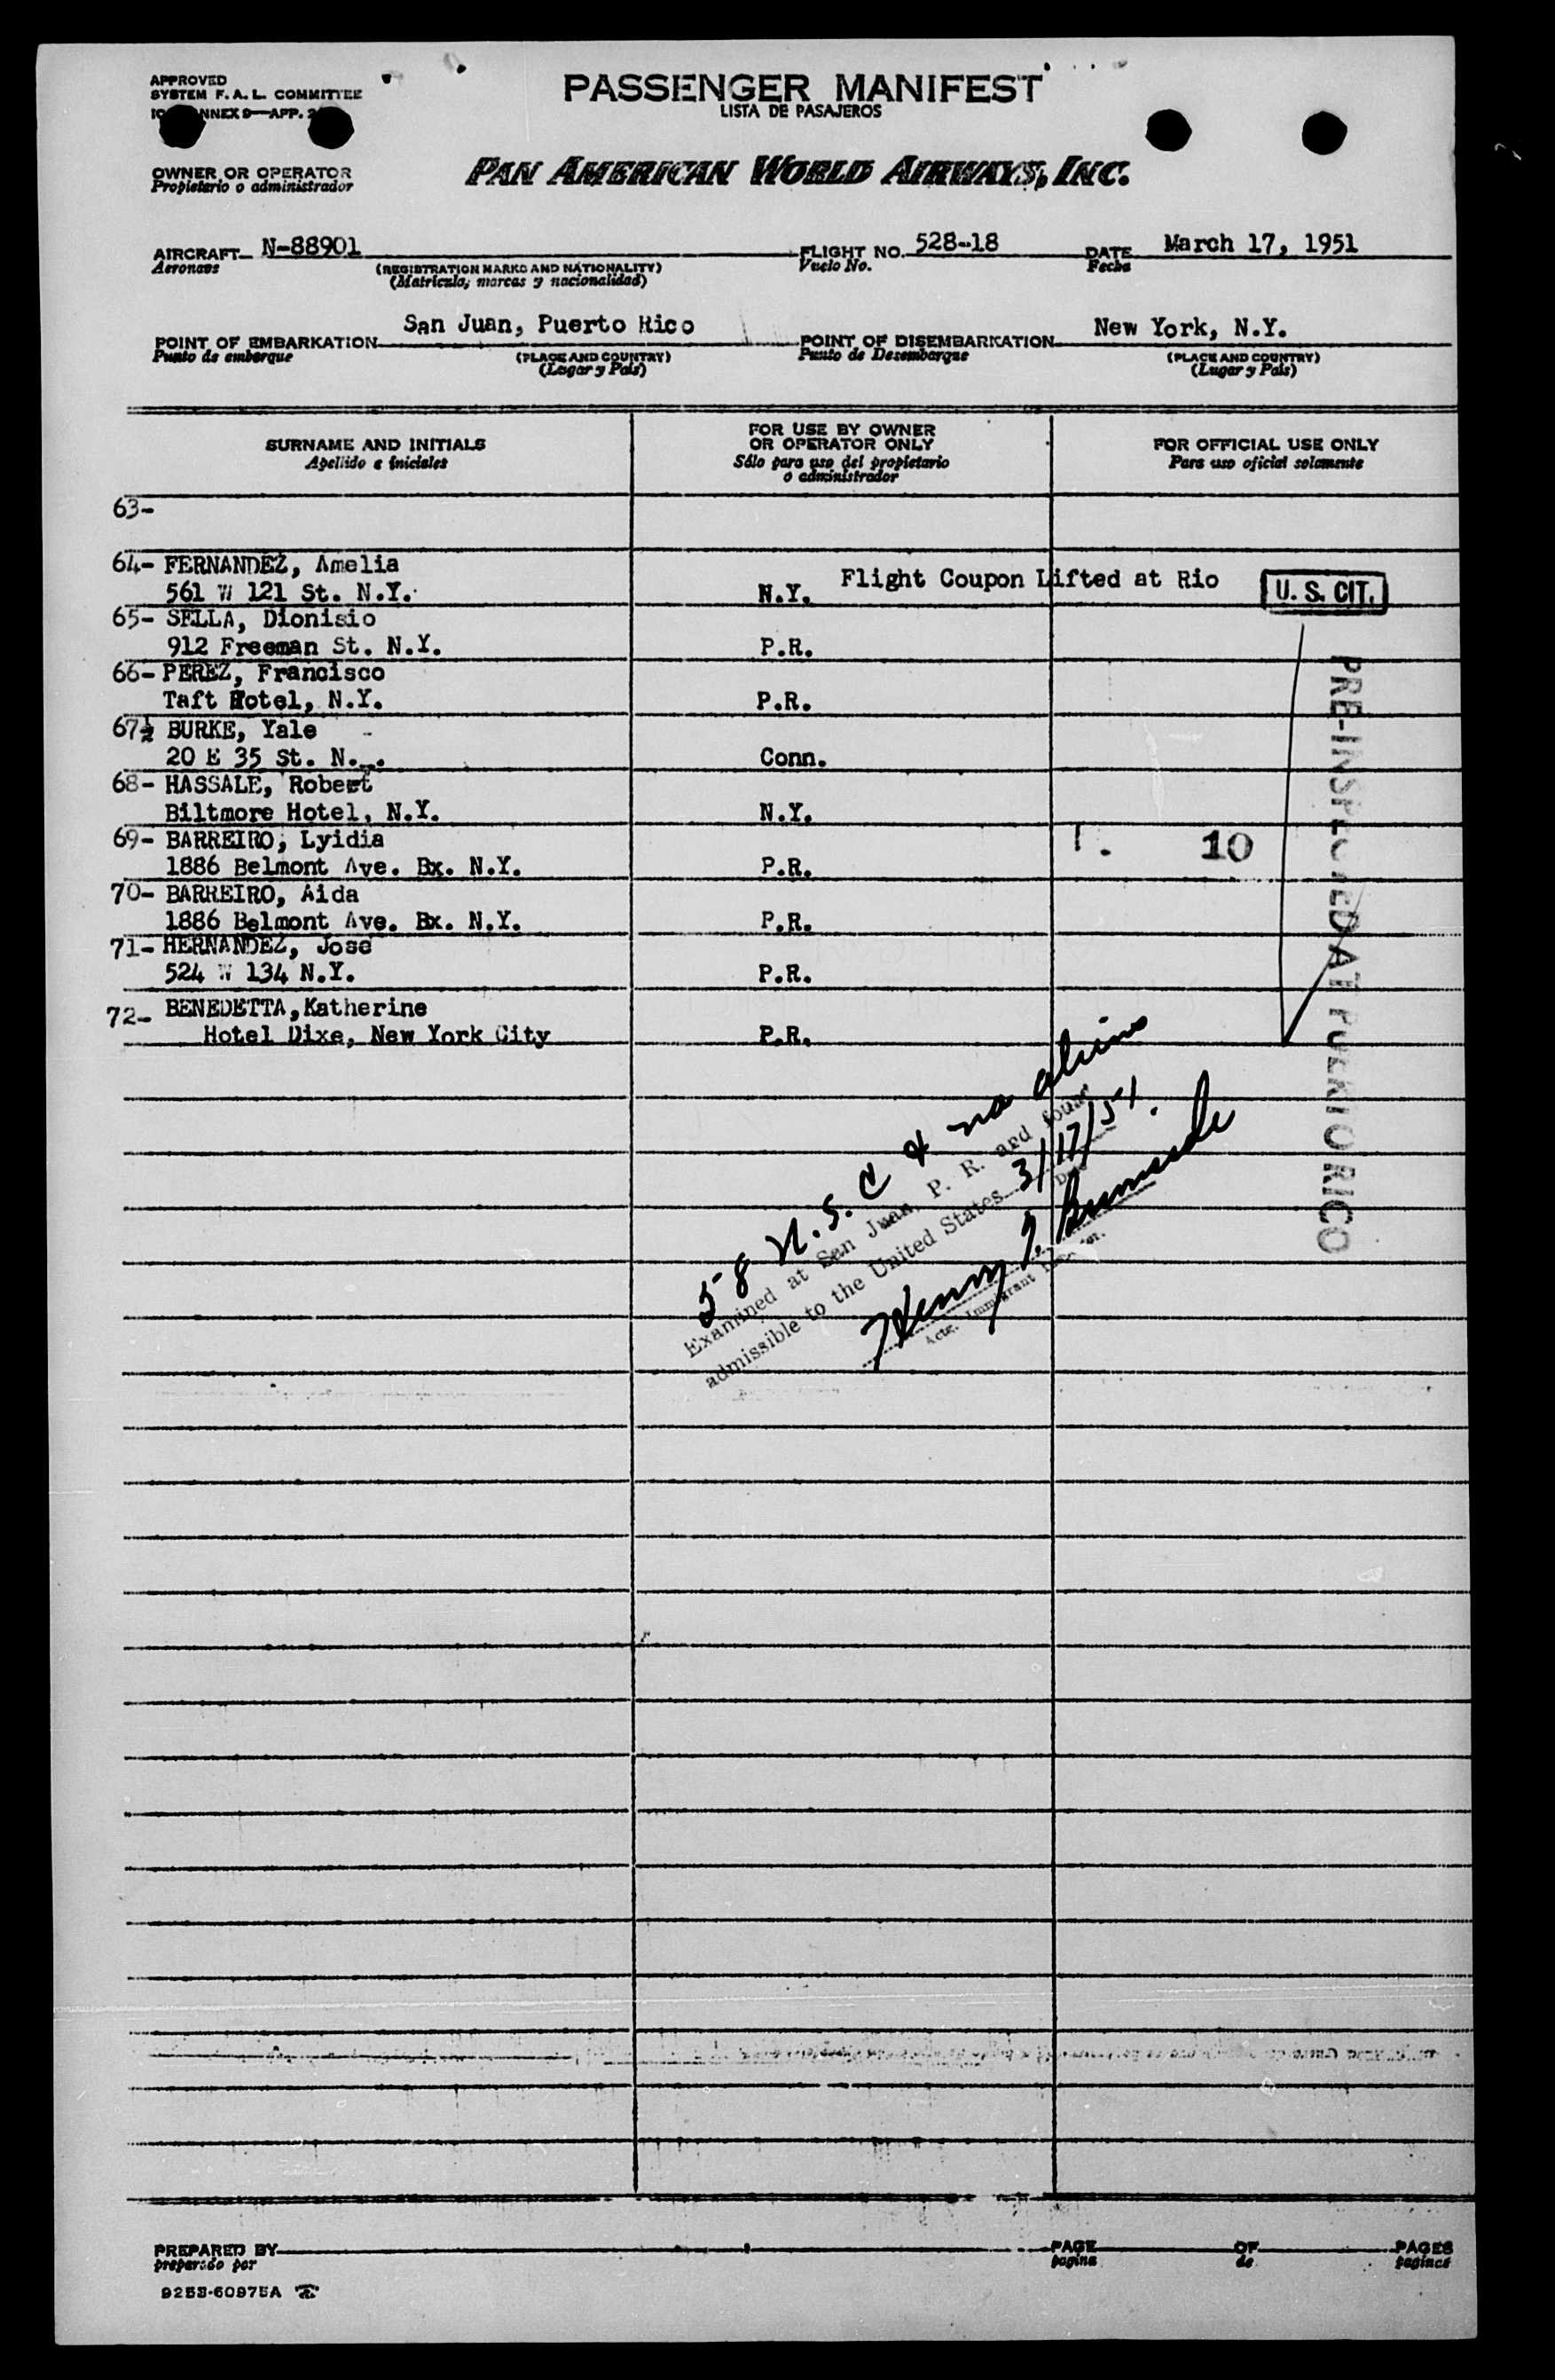 APPROVED
SYSTEM F. A. L. COMMITTEE
ANNEX 9—APP.
PASSENGER MANIFEST
LISTA DE PASAJEROS
OWNER OR OPERATOR
Propietario o administrador
PAN AMERICAN WORLD AIRWAYS, INC.
AIRCRAFT N-88901 FLIGHT NO. 528-18 DATE March 17, 1951
Aeronave (REGISTRATION MARKS AND NATIONALITY) Vuelo No. Fecha
(Matrícula, marcas y nacionalidad)
POINT OF EMBARKATION San Juan, Puerto Rico POINT OF DISEMBARKATION New York, N.Y.
Punto de embarque (PLACE AND COUNTRY) Punto de Desembarque (PLACE AND COUNTRY)
(Lugar y País) (Lugar y País)
SURNAME AND INITIALS
Apellido e iniciales
FOR USE BY OWNER
OR OPERATOR ONLY
Sólo para uso del propietario
o administrador
FOR OFFICIAL USE ONLY
Para uso oficial solamente
63-
64- FERNANDEZ, Amelia
561 W 121 St. N.Y. N.Y. Flight Coupon Lifted at Rio U. S. CIT.
65- SELLA, Dionisio
912 Freeman St. N.Y. P.R.
66- PEREZ, Francisco
Taft Hotel, N.Y. P.R.
67½ BURKE, Yale -
20 E 35 St. N. . Conn.
68- HASSALE, Robert
Biltmore Hotel, N.Y. N.Y.
69- BARREIRO, Lyidia 10
1886 Belmont Ave. Bx. N.Y. P.R.
70- BARREIRO, Aida
1886 Belmont Ave. Bx. N.Y. P.R.
71- HERNANDEZ, Jose
524 W 134 N.Y. P.R.
72- BENEDETTA, Katherine
Hotel Dixe, New York City P.R.
PRE-INSPECTED AT PUERTO RICO
58 U.S. C & no aliens
Examined at San Juan, P. R. and found
admissible to the United States 3/17/51.
Date
Henry J. Burnside
Actg. Immigrant Inspector.
PREPARED BY PAGE OF PAGES
preparado por pagina de paginas
9253-60975A